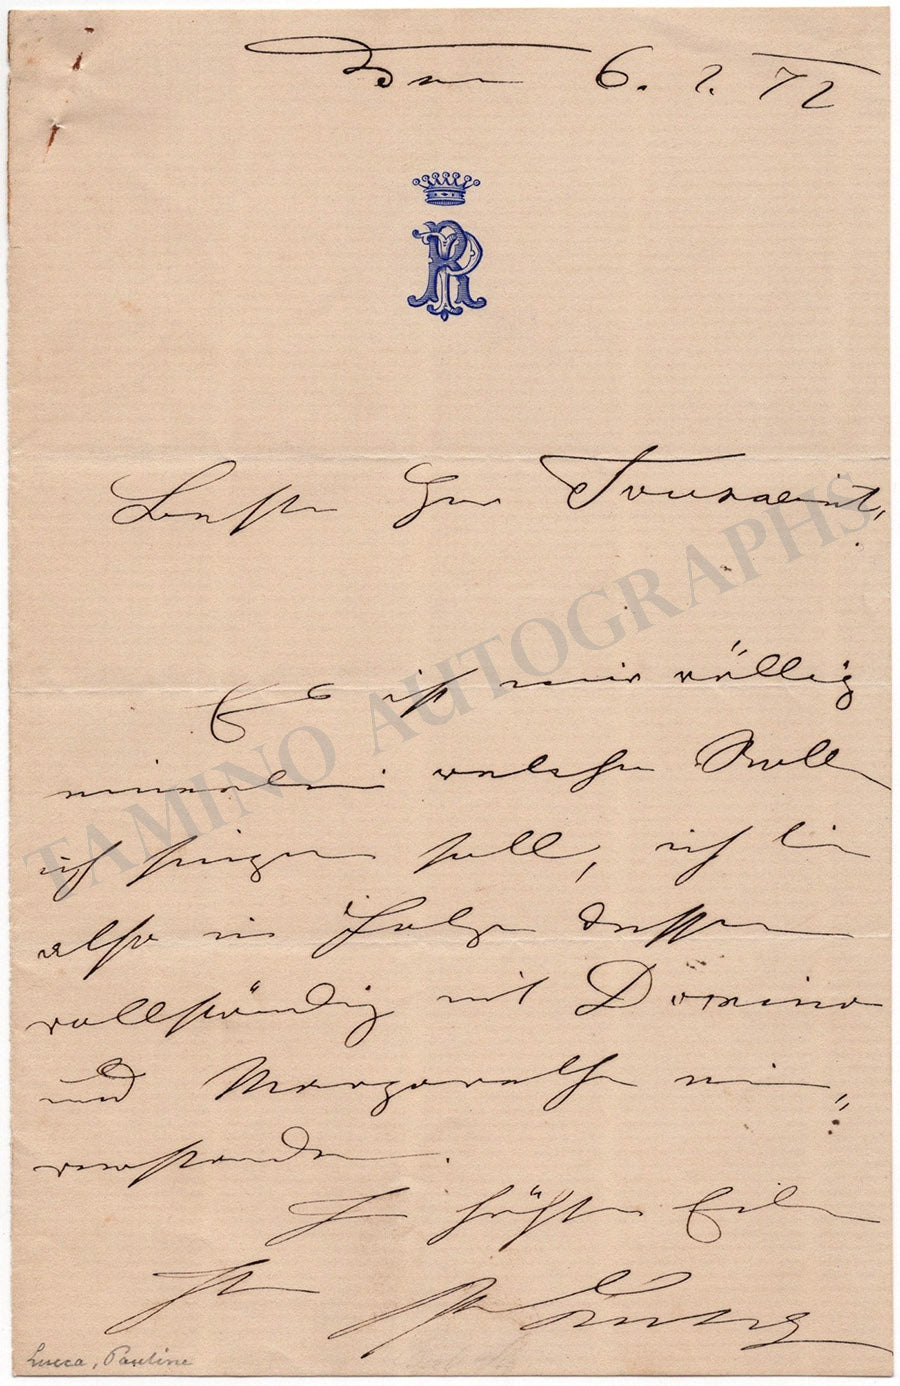 Den 6. 2. 72
PR
Bester Herr Toussaint,
Es ist mir völlig
einerlei welche Rolle
ich singen soll, ich bin
also in Folge dessen
vollständig mit Domino
und Margarethe ein„
verstanden.
In höchster Eile
Ihre
Lucca, Pauline
TAMINO AUTOGRAPHS